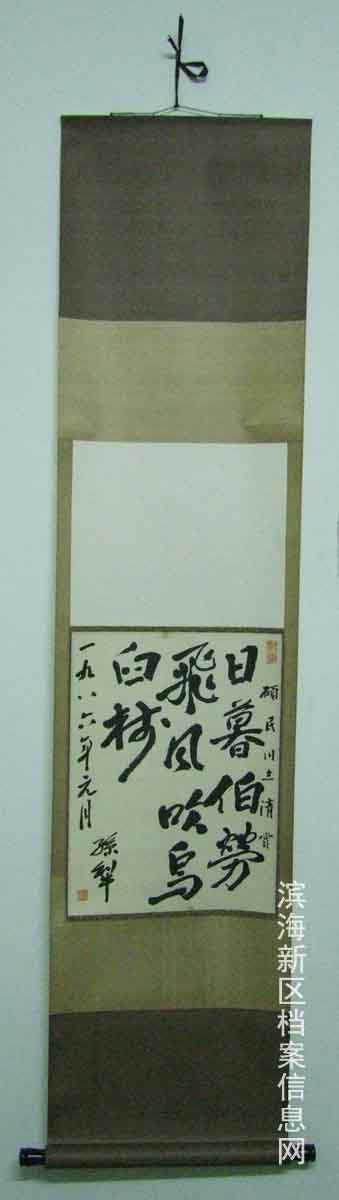 碩民同志清赏
日暮伯勞
飛风吹烏
臼树
一九八六年元月
孫犁
滨海新区档案信息网